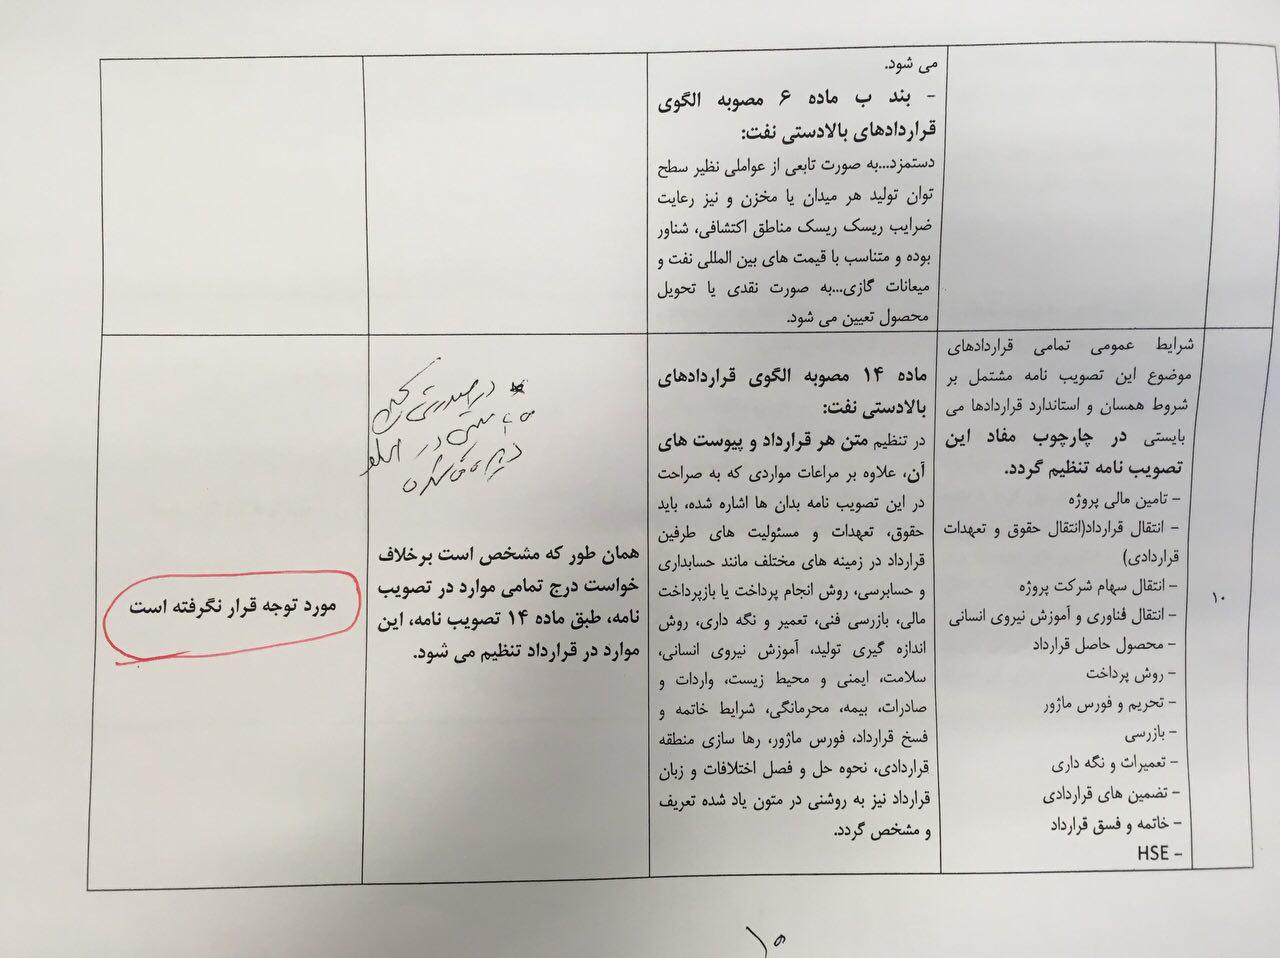 می شود.
- بند ب ماده ۶ مصوبه الگوی
قراردادهای بالادستی نفت:
دستمزد...به صورت تابعی از عواملی نظیر سطح
توان تولید هر میدان یا مخزن و نیز رعایت
ضرایب ریسک ریسک مناطق اکتشافی، شناور
بوده و متناسب با قیمت های بین المللی نفت و
میعانات گازی...به صورت نقدی یا تحویل
محصول تعیین می شود.
۱۰
شرایط عمومی تمامی قراردادهای
موضوع این تصویب نامه مشتمل بر
شروط همسان و استاندارد قراردادها می
بایستی در چارچوب مفاد این
تصویب نامه تنظیم گردد.
- تامین مالی پروژه
- انتقال قرارداد(انتقال حقوق و تعهدات
قراردادی)
- انتقال سهام شرکت پروژه
- انتقال فناوری و آموزش نیروی انسانی
- محصول حاصل قرارداد
- روش پرداخت
- تحریم و فورس ماژور
- بازرسی
- تعمیرات و نگه داری
- تضمین های قراردادی
- خاتمه و فسق قرارداد
- HSE
ماده ۱۴ مصوبه الگوی قراردادهای
بالادستی نفت:
در تنظیم متن هر قرارداد و پیوست های
آن، علاوه بر مراعات مواردی که به صراحت
در این تصویب نامه بدان ها اشاره شده، باید
حقوق، تعهدات و مسئولیت های طرفین
قرارداد در زمینه های مختلف مانند حسابداری
و حسابرسی، روش انجام پرداخت یا بازپرداخت
مالی، بازرسی فنی، تعمیر و نگه داری، روش
اندازه گیری تولید، آموزش نیروی انسانی،
سلامت، ایمنی و محیط زیست، واردات و
صادرات، بیمه، محرمانگی، شرایط خاتمه و
فسخ قرارداد، فورس ماژور، رها سازی منطقه
قراردادی، نحوه حل و فصل اختلافات و زبان
قرارداد نیز به روشنی در متون یاد شده تعریف
و مشخص گردد.
در صورتی که
همان طور که مشخص است برخلاف
خواست درج تمامی موارد در تصویب
نامه، طبق ماده ۱۴ تصویب نامه، این
موارد در قرارداد تنظیم می شود.
مورد توجه قرار نگرفته است